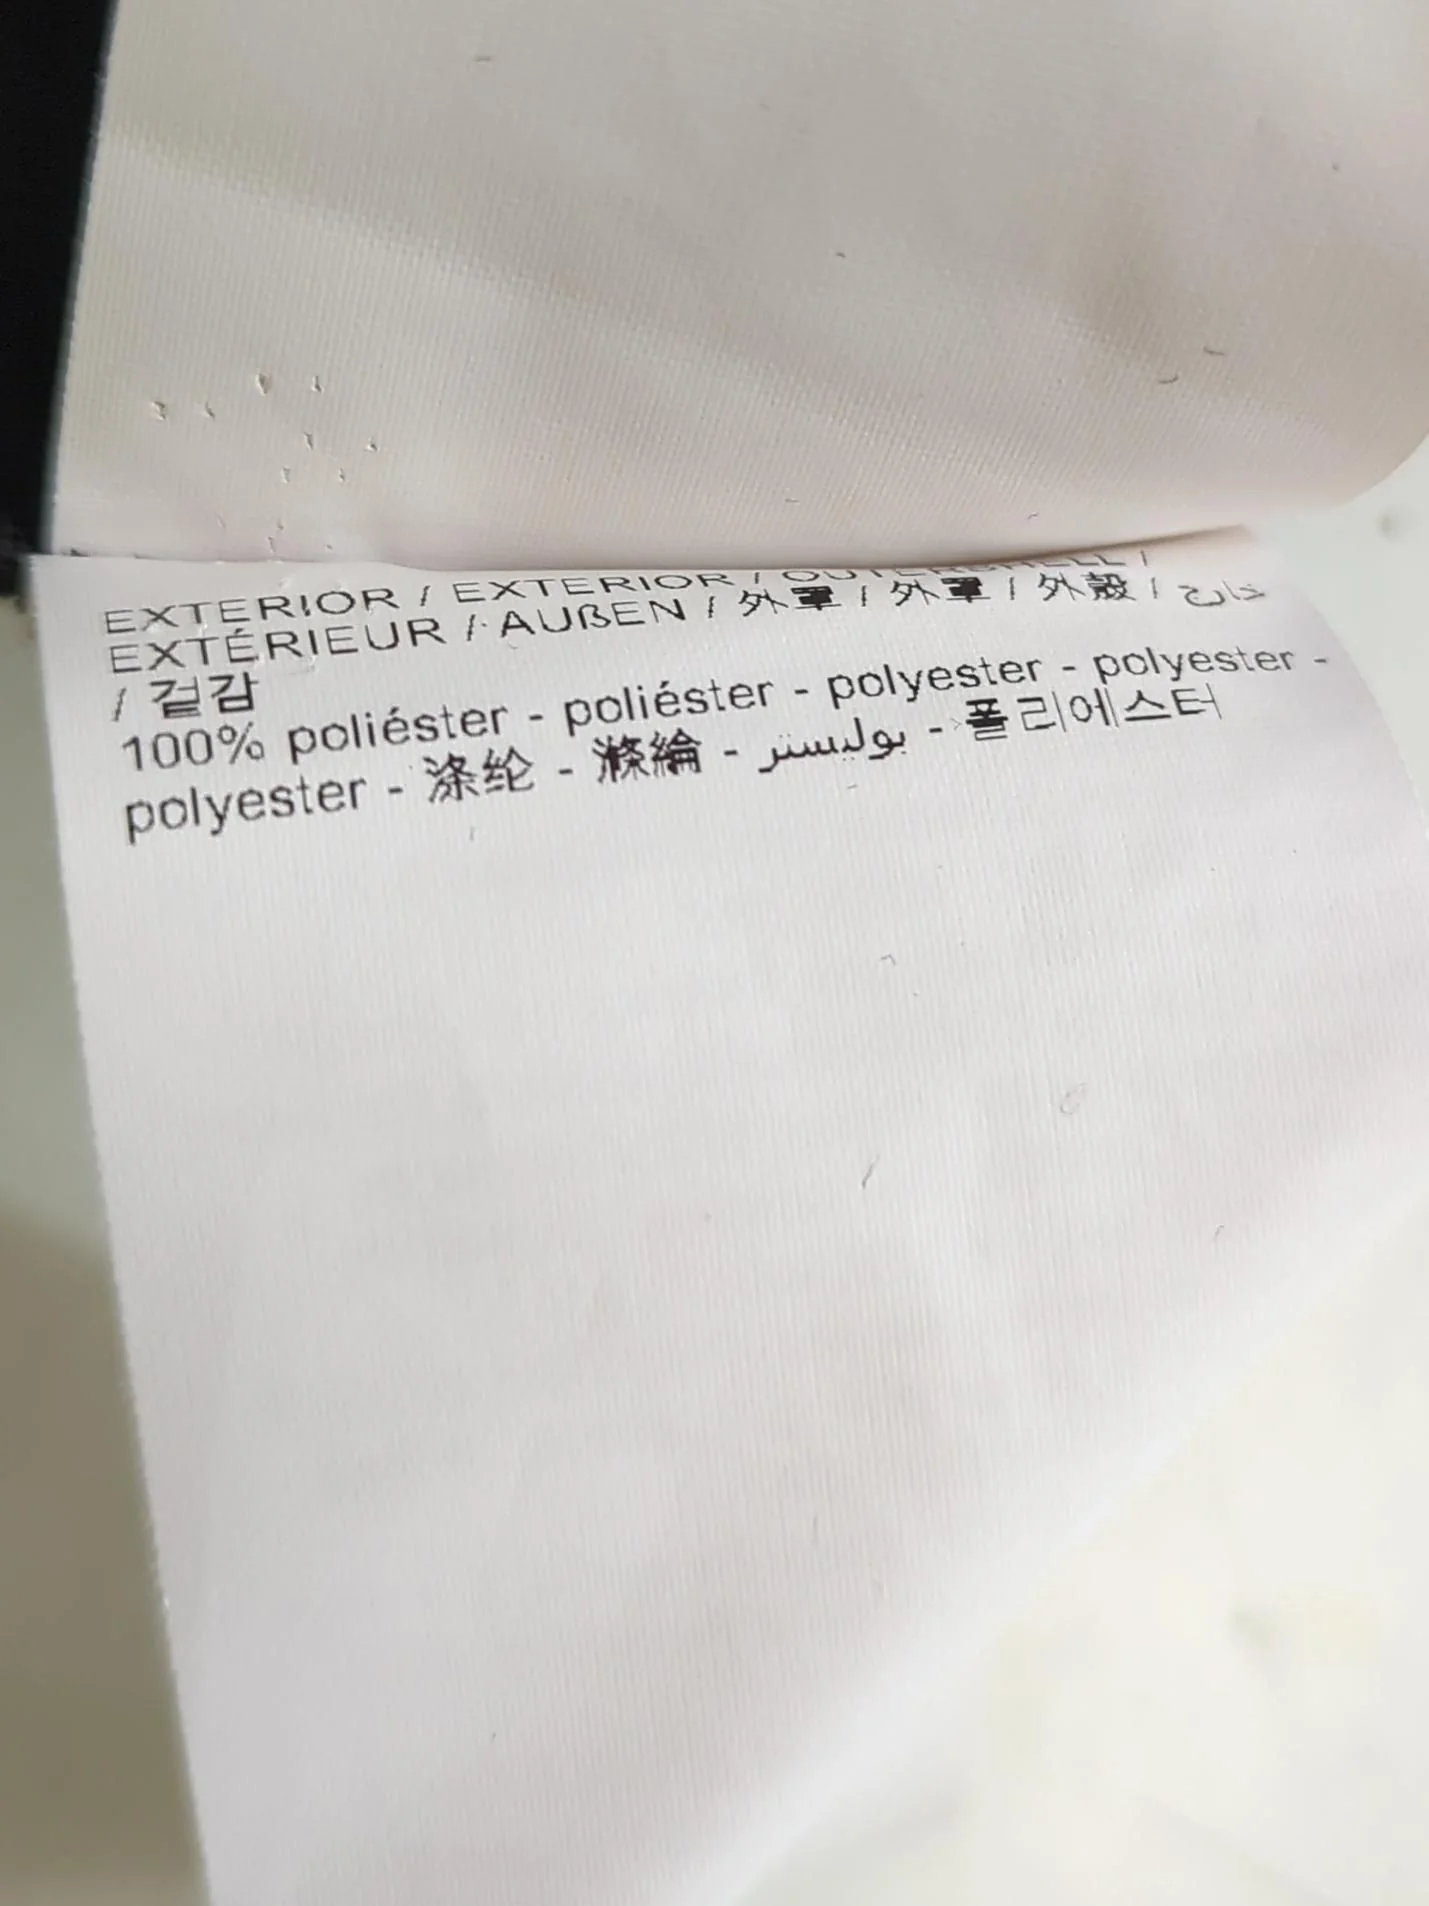 EXTERIOR / EXTERIOR / OUTERSHELL /
EXTÉRIEUR / AUßEN / 外罩 / 外罩 / 外殼 / خارج
/ 겉감
100% poliéster - poliéster - polyester - polyester -
polyester - 涤纶 - 滌綸 - بوليستر - 폴리에스터